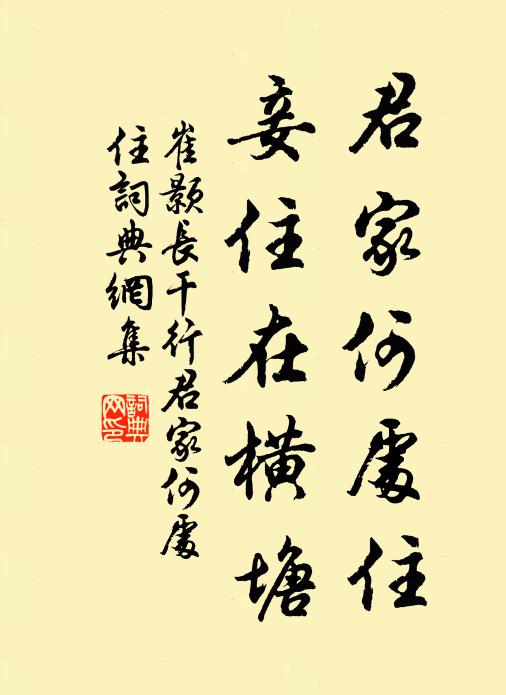 君家何處住
妾住在橫塘
崔顥長干行君家何處
住詞典網集
詞典
网印